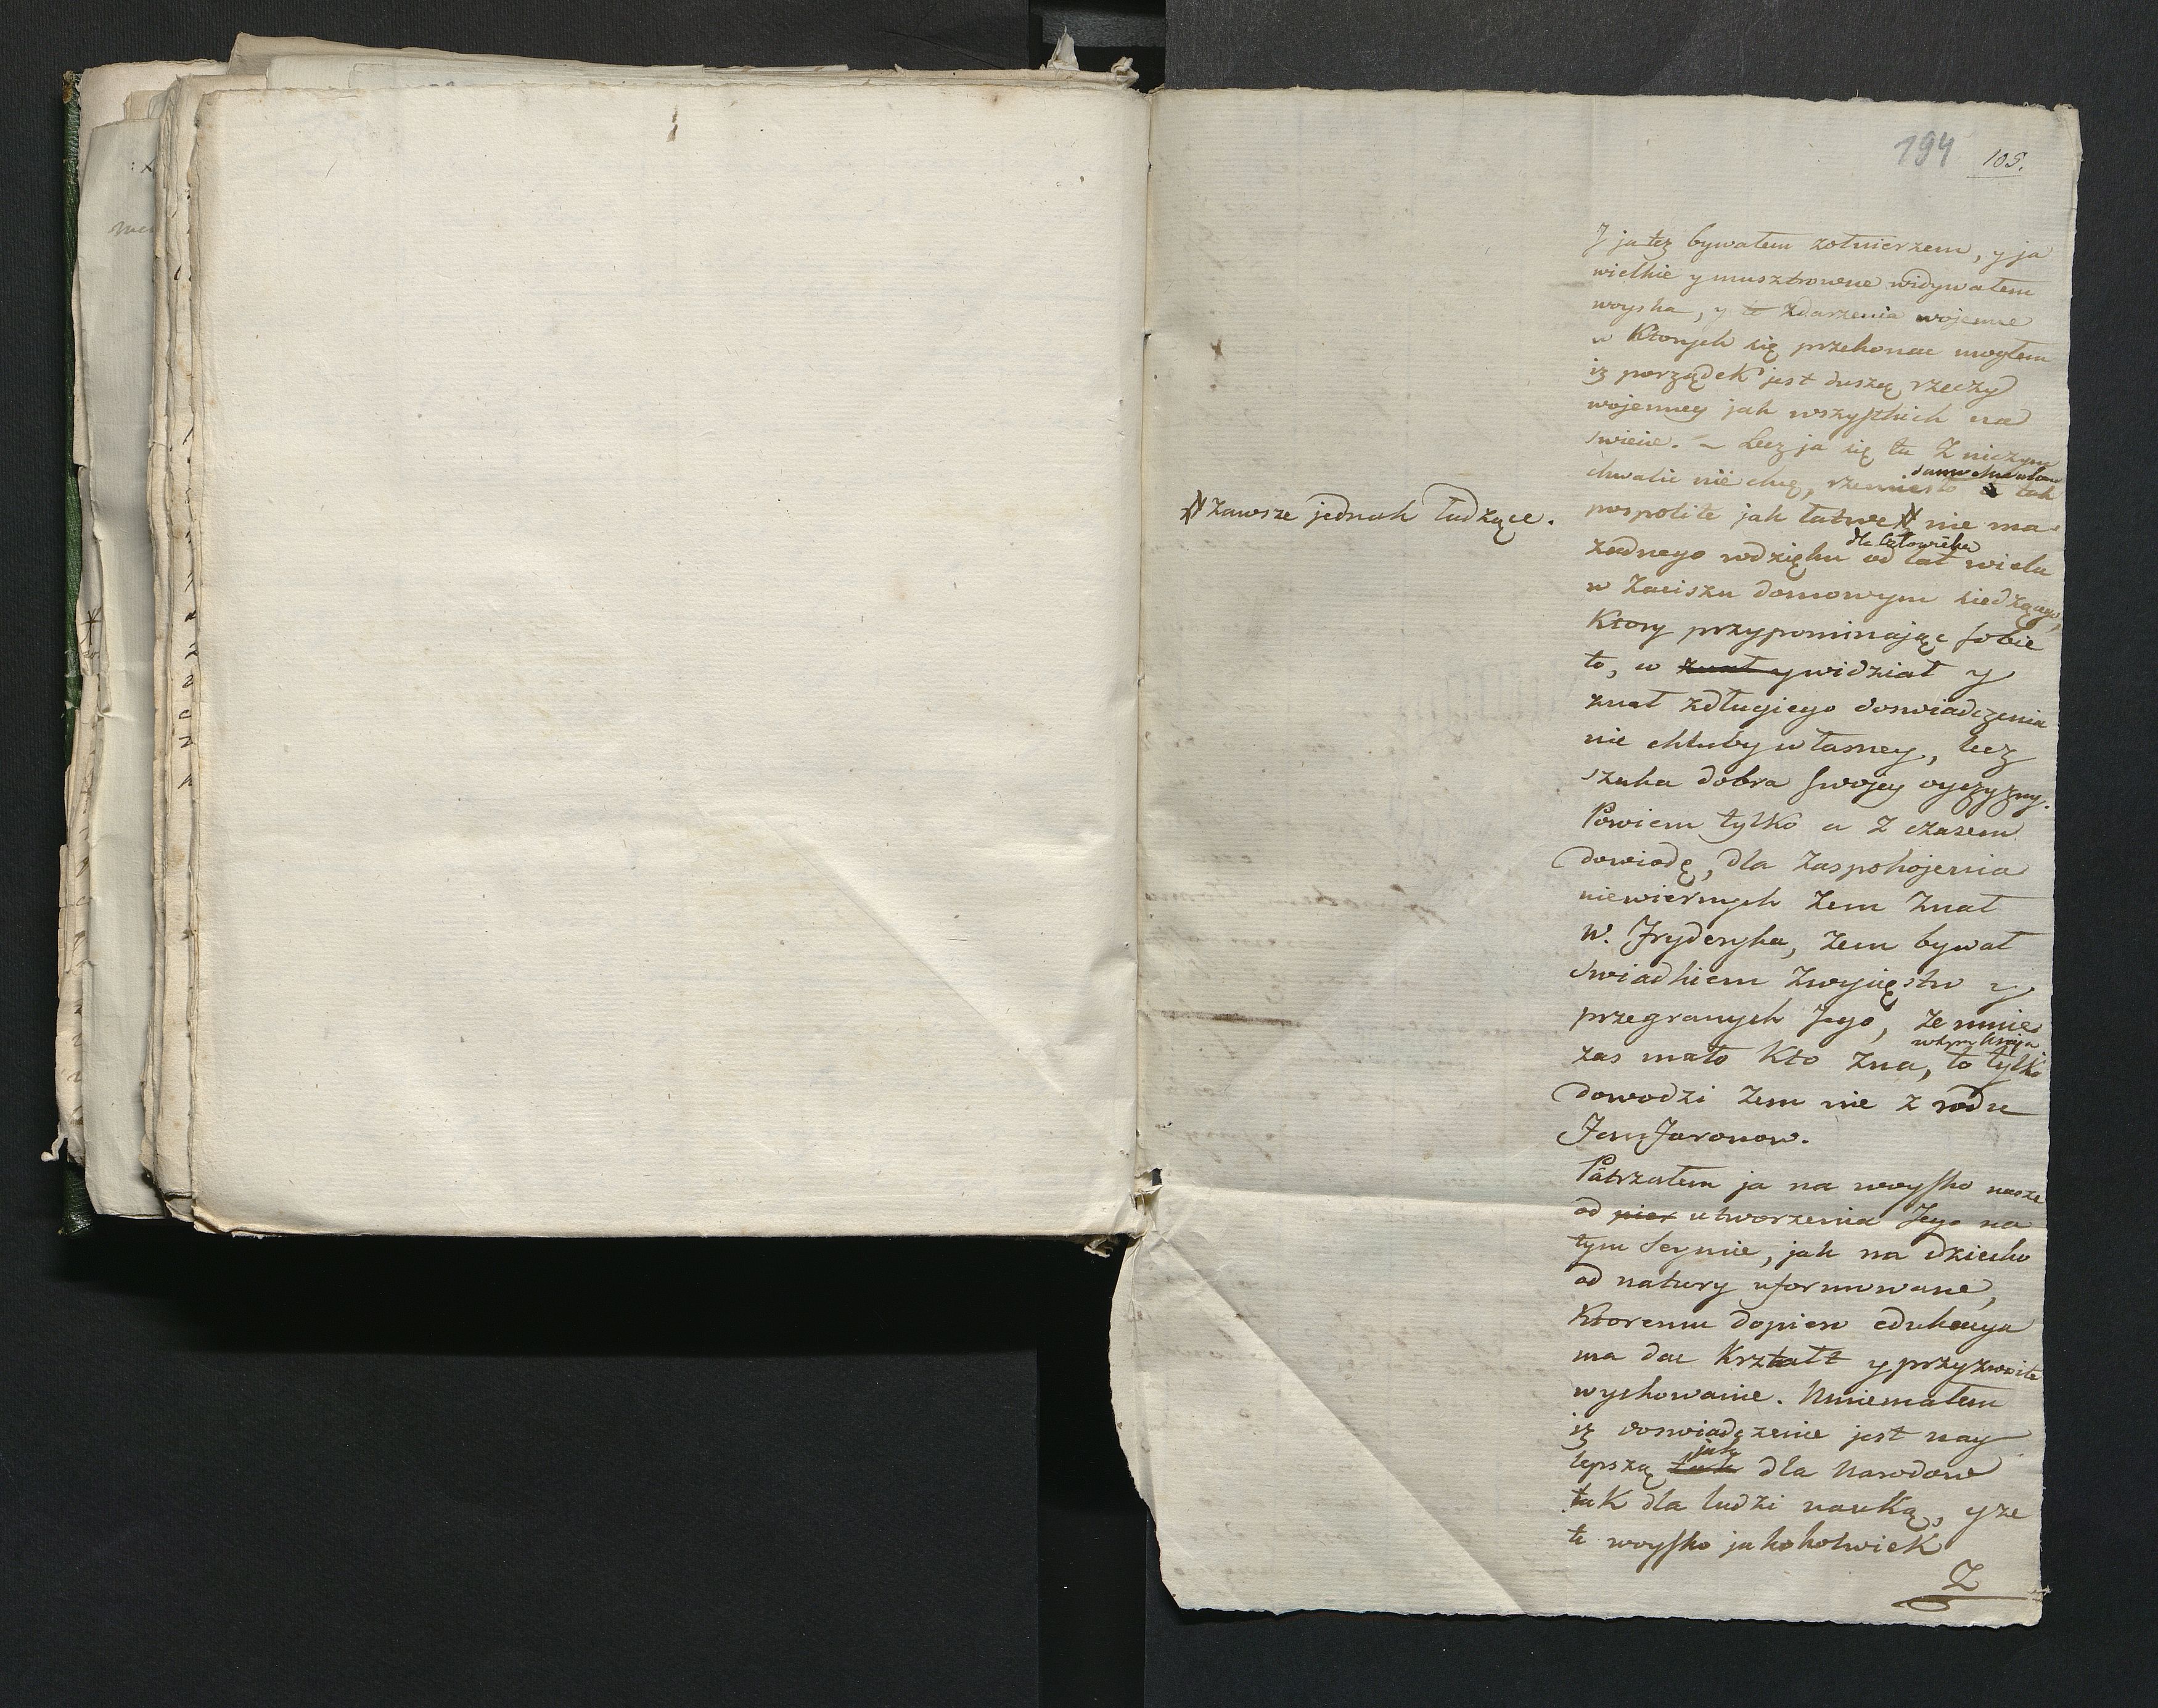 194 105.
J ja też bywałem zołnierzem, y ja
wielkie y musztrowne widywałem
woyska, y te zdarzenia wojenne
w Ktorych się przekonac mogłem
iz porządek jest duszą rzeczy
wojenney jak wszystkich na
swiecie. – Lecz ja się tu z niczym
chwalic nie chcę, rzemiesło tak
pospolite jak łatwe # nie ma
# zawsze jednak łudzące.
dla Człowieka
zadnego wdzięku od lat wielu
w Zaciszu domowym siedzącego,
Ktory przypominając sobie
to, co znał y widział y
znał z długiego doswiadczenia
nie chluby własney, lecz
szuka dobra swojey oyczyzny.
Powiem tylko a z czasem
dowiodę, dla zaspokojenia
niewiernych Zem Znał
W. Fryderyka, Zem bywał
swiadkiem Zwycięstw y
przegranych Jego, ze mnie
w tym kraju
zas mało Kto Zna, to tylko
dowodzi Zem nie z rodu
FanFaronow.
Patrzałem ja na woysko nasze
od utworzenia Jego na
tym Seymie, jak na dziecko
od natury uformowane,
Ktoremu dopiero edukacya
ma dac Kształt y przyzwoite
wychowanie. Mniemałem
iz doswiadczenie jest nay
jak
lepszą tak dla Narodow
tak dla ludzi nauką, y ze
te woysko jakokolwiek
Z